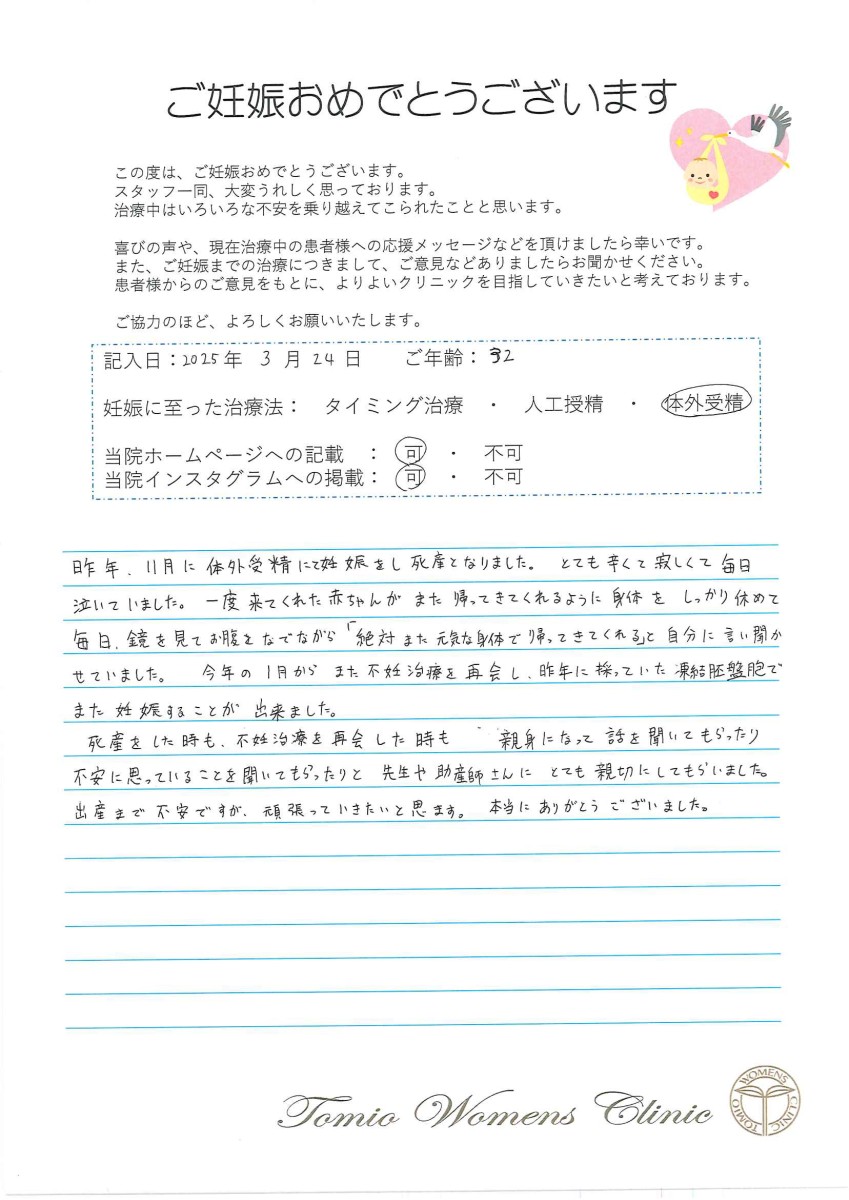 ご妊娠おめでとうございます
この度は、ご妊娠おめでとうございます。
スタッフ一同、大変うれしく思っております。
治療中はいろいろな不安を乗り越えてこられたことと思います。
喜びの声や、現在治療中の患者様への応援メッセージなどを頂けましたら幸いです。
また、ご妊娠までの治療につきまして、ご意見などありましたらお聞かせください。
患者様からのご意見をもとに、よりよいクリニックを目指していきたいと考えております。
ご協力のほど、よろしくお願いいたします。
記入日：2025年 3 月 24 日 ご年齢：32
妊娠に至った治療法： タイミング治療 ・ 人工授精 ・ 体外受精
当院ホームページへの記載 ： 可 ・ 不可
当院インスタグラムへの掲載： 可 ・ 不可
昨年、11月に 体外受精にて妊娠をし 死産となりました。 とても辛くて寂しくて 毎日
泣いていました。一度 来てくれた 赤ちゃんが また 帰ってきてくれるように 身体を しっかり休めて
毎日、鏡を見てお腹をなでながら「絶対また元気な身体で帰ってきてくれる」と自分に言い聞か
せていました。 今年の 1月から また不妊治療を再会し、昨年に採っていた凍結胚盤胞で
また 妊娠することが 出来ました。
死産をした時も、不妊治療を再会した時も 親身になって 話を聞いてもらったり
不安に思っていることを聞いてもらったりと 先生や助産師さんに とても親切にしてもらいました。
出産まで 不安ですが、頑張っていきたいと思ます。 本当にありがとうございました。
Tomio Womens Clinic
TOMIO WOMENS CLINIC